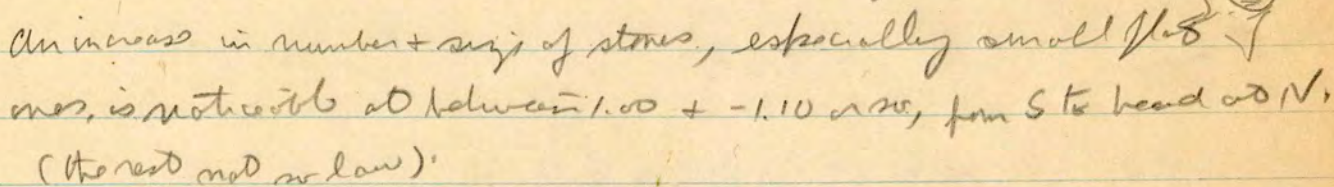 An increase in number + size of stones, especially small flat
ones, is noticeable at between 1.00 + -1.10 or so, from S to head at N.
(the rest not so low).